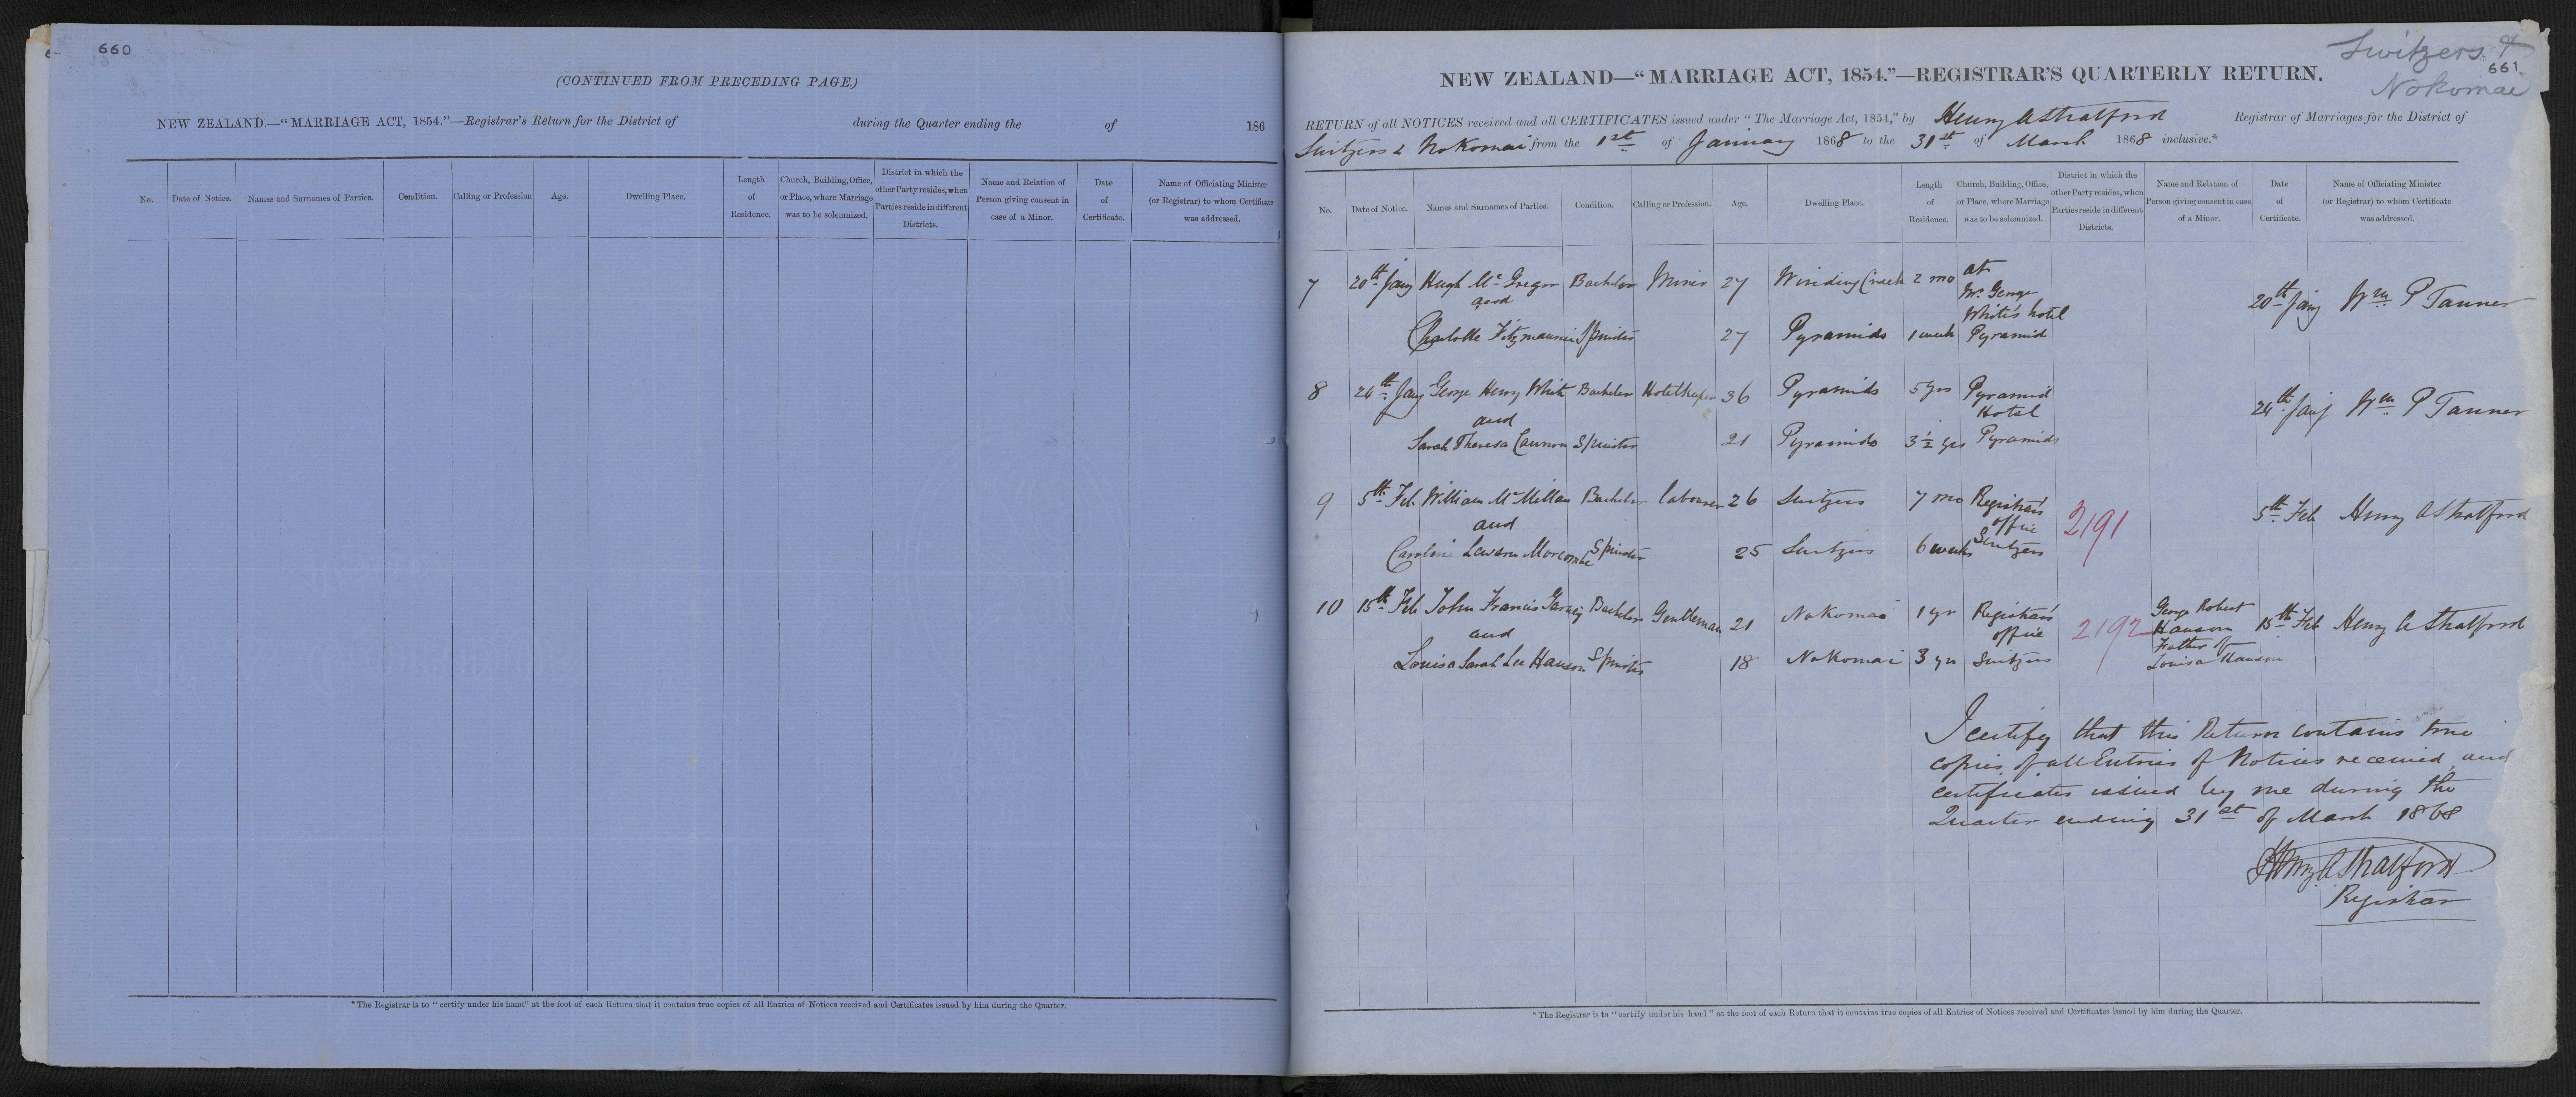 660
(CONTINUED FROM PRECEDING PAGE.)
NEW ZEALAND.—“MARRIAGE ACT, 1854.”—Registrar's Return for the District of during the Quarter ending the of 186
No. Date of Notice. Names and Surnames of Parties. Condition. Calling or Profession Age. Dwelling Place. Length of Residence. Church, Building, Office, or Place, where Marriage was to be solemnized. District in which the other Party resides, when Parties reside in different Districts. Name and Relation of Person giving consent in case of a Minor. Date of Certificate. Name of Officiating Minister (or Registrar) to whom Certificate was addressed.
* The Registrar is to “certify under his hand” at the foot of each Return that it contains true copies of all Entries of Notices received and Certificates issued by him during the Quarter.
Switzers &
661
Nokomai
NEW ZEALAND—“MARRIAGE ACT, 1854.”—REGISTRAR'S QUARTERLY RETURN.
RETURN of all NOTICES received and all CERTIFICATES issued under “The Marriage Act, 1854,” by Henry A Stratford Registrar of Marriages for the District of
Switzers & Nokomai from the 1st of January 1868 to the 31st of March 1868 inclusive.*
No. Date of Notice. Names and Surnames of Parties. Condition. Calling or Profession. Age. Dwelling Place. Length of Residence. Church, Building, Office, or Place, where Marriage was to be solemnized. District in which the other Party resides, when Parties reside in different Districts. Name and Relation of Person giving consent in case of a Minor. Date of Certificate. Name of Officiating Minister (or Registrar) to whom Certificate was addressed.
7 20th Jany Hugh McGregor Bachelor Miner 27 Winding Creek 2 mo at Mr. George White's hotel 20th Jany Wm P Tanner
and
Charlotte Fitzmaurice Spinster 27 Pyramids 1 week Pyramid
8 24th Jany George Henry White Bachelor Hotelkeeper 36 Pyramids 5 yrs Pyramid Hotel 24th Jany Wm P Tanner
and
Sarah Theresa Cannon Spinster 21 Pyramids 3½ yrs Pyramids
9 5th Feb. William McMillan Bachelor labourer 26 Switzers 7 mo Registrar's office 2191 5th Feb Henry A Stratford
and
Caroline Morcombe Spinster 25 Switzers 6 weeks Switzers
10 15th Feb John Francis Bachelor Gentleman 21 Nokomai 1 yr Registrar's office 2192 George Robert Hanson 15th Feb Henry A Stratford
and Father of
Louisa Sarah Lee Hanson Spinster 18 Nokomai 3 yrs Switzers Louisa Hanson
I certify that this Return contains true
copies of all Entries of Notices received and
certificates issued by me during the
Quarter ending 31st of March 1868
Henry A Stratford
Registrar
* The Registrar is to “certify under his hand” at the foot of each Return that it contains true copies of all Entries of Notices received and Certificates issued by him during the Quarter.